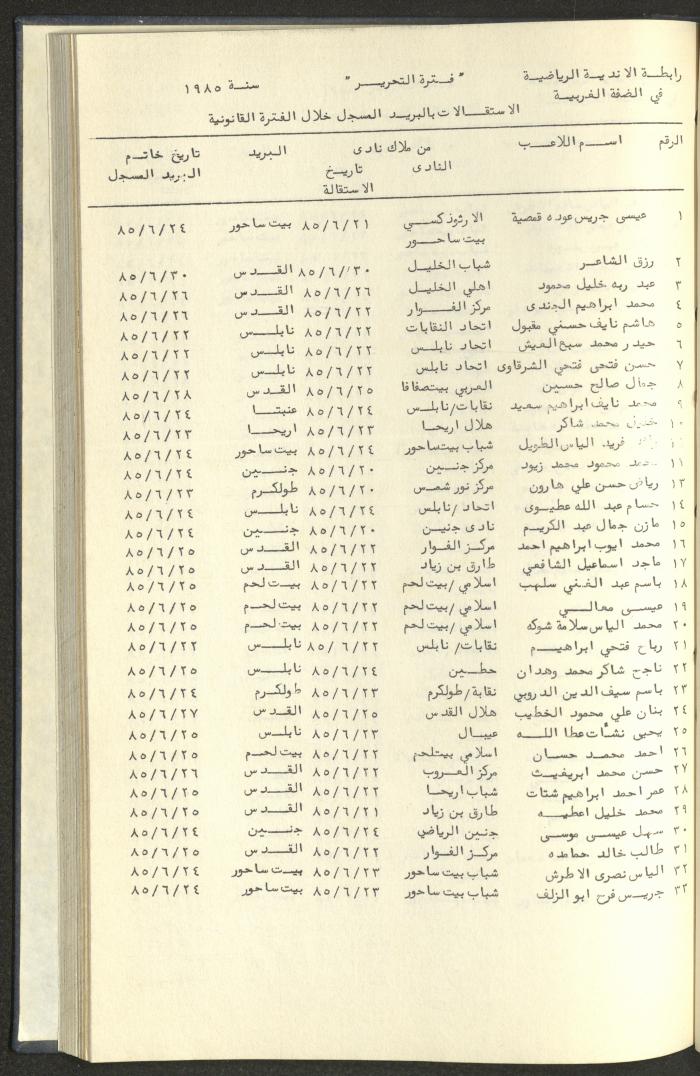 رابطة الاندية الرياضية " فترة التحرير " سنة ١٩٨٥
في الضفة الغربية
الاستقالات بالبريد المسجل خلال الفترة القانونية
الرقم اسم اللاعب من ملاك نادى البريد تاريخ خاتم
النادى تاريخ البريد المسجل
الاستقالة
١ عيسى جريس عوده قمصية الارثوذكسي ٨٥/٦/٢١ بيت ساحور ٨٥/٦/٢٤
بيت ساحور
٢ رزق الشاعر شباب الخليل ٨٥/٦/٣٠ القدس ٨٥/٦/٣٠
٣ عبد ربه خليل محمود اهلي الخليل ٨٥/٦/٢٦ القدس ٨٥/٦/٢٦
٤ محمد ابراهيم الجندى مركز الفوار ٨٥/٦/٢٢ القدس ٨٥/٦/٢٦
٥ هاشم نايف حسني مقبول اتحاد النقابات ٨٥/٦/٢٢ نابلس ٨٥/٦/٢٢
٦ حيدر محمد سبع العيش اتحاد نابلس ٨٥/٦/٢٢ نابلس ٨٥/٦/٢٢
٧ حسن فتحى فتحي الشرقاوى اتحاد نابلس ٨٥/٦/٢٢ نابلس ٨٥/٦/٢٢
٨ جمال صالح حسين العربي بيتصفافا ٨٥/٦/٢٥ القدس ٨٥/٦/٢٨
٩ محمد نايف ابراهيم سعيد نقابات/نابلس ٨٥/٦/٢٤ عنبتا ٨٥/٦/٢٤
١٠ محمد شاكر هلال اريحا ٨٥/٦/٢٣ اريحا ٨٥/٦/٢٣
فريد الياس الطويل شباب بيتساحور ٨٥/٦/٢٤ بيت ساحور ٨٥/٦/٢٤
١١ محمد محمود محمد زيود مركز جنين ٨٥/٦/٢٠ جنين ٨٥/٦/٢٤
١٣ رياض حسن علي هارون مركز نور شمس ٨٥/٦/٢٠ طولكرم ٨٥/٦/٢٣
١٤ حسام عبد الله عطيوى اتحاد/نابلس ٨٥/٦/٢٤ نابلس ٨٥/٦/٢٤
١٥ مازن جمال عبد الكريم نادى جنين ٨٥/٦/٢٠ جنين ٨٥/٦/٢٤
١٦ محمد ايوب ابراهيم احمد مركز الفوار ٨٥/٦/٢٢ القدس ٨٥/٦/٢٥
١٧ ماجد اسماعيل الشافعي طارق بن زياد ٨٥/٦/٢٢ القدس ٨٥/٦/٢٥
١٨ باسم عبد الغني سلهب اسلامي/بيت لحم ٨٥/٦/٢٢ بيت لحم ٨٥/٦/٢٥
١٩ عيسى معالي اسلامي/بيت لحم ٨٥/٦/٢٢ بيت لحم ٨٥/٦/٢٥
٢٠ محمد الياس سلامة شوكه اسلامي/بيت لحم ٨٥/٦/٢٢ بيت لحم ٨٥/٦/٢٥
٢١ رباح فتحي ابراهيم نقابات/نابلس ٨٥/٦/٢٢ نابلس ٨٥/٦/٢٢
٢٢ ناجح شاكر محمد وهدان حطين ٨٥/٦/٢٤ نابلس ٨٥/٦/٢٥
٢٣ باسم سيف الدين الدروبي نقابة/طولكرم ٨٥/٦/٢٣ طولكرم ٨٥/٦/٢٤
٢٤ بنان علي محمود الخطيب هلال القدس ٨٥/٦/٢٥ القدس ٨٥/٦/٢٧
٢٥ يحيى نشأت عطا الله عيبال ٨٥/٦/٢٣ نابلس ٨٥/٦/٢٥
٢٦ احمد محمد حسان اسلامي بيتلحم ٨٥/٦/٢٢ بيت لحم ٨٥/٦/٢٥
٢٧ حسن محمد ابريغيث مركز العروب ٨٥/٦/٢٢ القدس ٨٥/٦/٢٦
٢٨ عمر احمد ابراهيم شتات شباب اريحا ٨٥/٦/٢٢ القدس ٨٥/٦/٢٥
٢٩ محمد خليل اعطيه طارق بن زياد ٨٥/٦/٢١ القدس ٨٥/٦/٢٥
٣٠ سهل عيسى موسى جنين الرياضي ٨٥/٦/٢٤ جنين ٨٥/٦/٢٤
٣١ طالب خالد حمامده مركز الفوار ٨٥/٦/٢٢ القدس ٨٥/٦/٢٥
٣٢ الياس نصرى الاطرش شباب بيت ساحور ٨٥/٦/٢٣ بيت ساحور ٨٥/٦/٢٤
٣٣ جريس فرح ابو الزلف شباب بيت ساحور ٨٥/٦/٢٣ بيت ساحور ٨٥/٦/٢٤